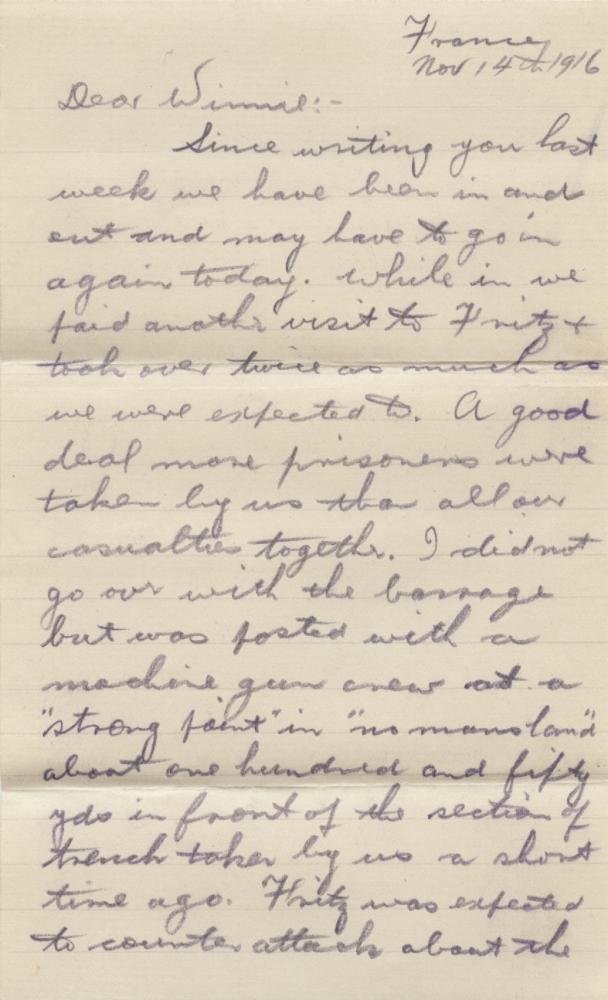 France
Nov 14th 1916
Dear Winnie:-
Since writing you last
week we have been in and
out and may have to go in
again today. While in we
paid another visit to Fritz +
took over twice as much as
we were expected to. A good
deal more prisoners were
taken by us than all our
casualties together. I did not
go over with the barrage
but was posted with a
machine gun crew at a
"strong point" in "no mans land"
about one hundred and fifty
yds in front of the section of
trench taken by us a short
time ago. Fritz was expected
to counter attack about the